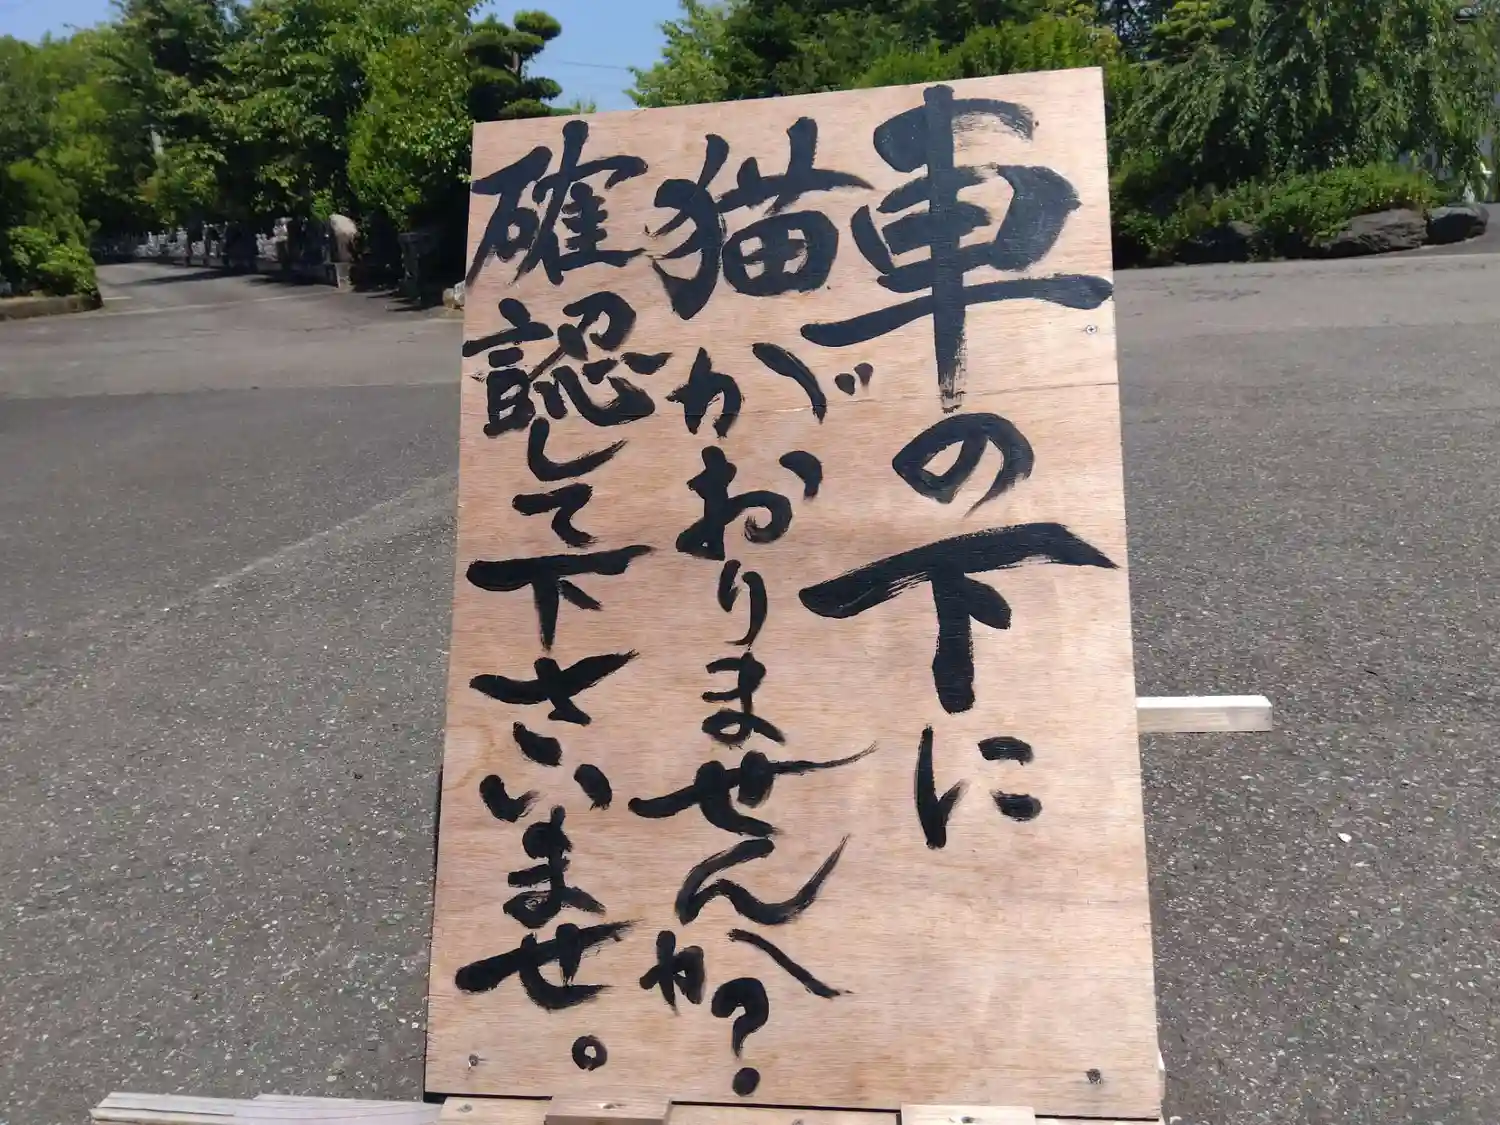 車の下に
猫がおりませんか?
確認して下さいませ。